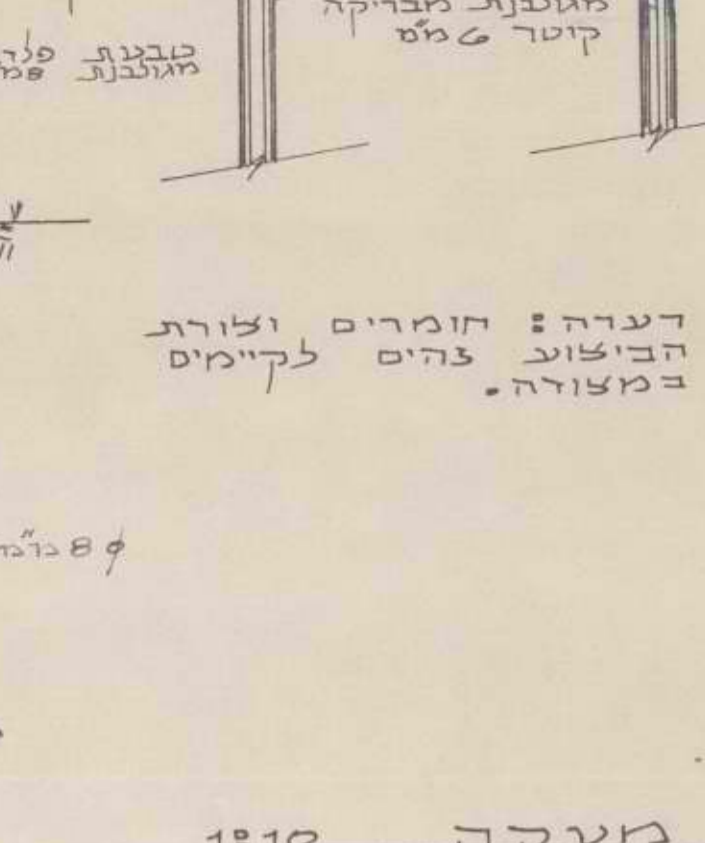 מגולבנת מבריקה
קוטר 6 מ"מ
טבעת
מגולבנת
הערה: חומרים וצורת
הביצוע זהים לקיימים
במצודה.
φ 8 מ"מ
מעקה